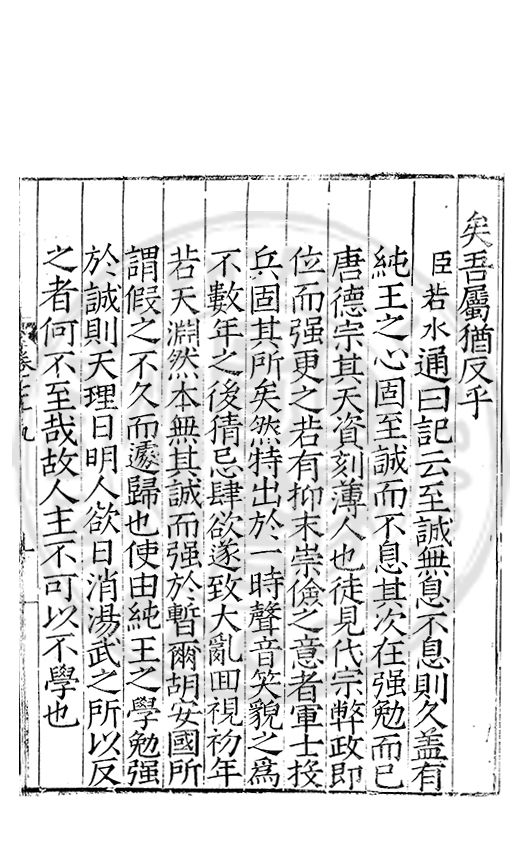 矣吾屬猶反乎
臣若水通曰記云至誠無息不息則久盖有
純王之心固至誠而不息其次在强勉而已
唐德宗其天資刻薄人也徒見代宗弊政即
位而强更之若有抑末崇儉之意者軍士投
兵固其所矣然特出於一時聲音笑貌之為
不數年之後猜忌肆欲遂致大亂囬視初年
若天淵然本無其誠而强於暫爾胡安國所
謂假之不久而遽歸也使由純王之學勉强
於誠則天理日明人欲日消湯武之所以反
之者何不至哉故人主不可以不學也